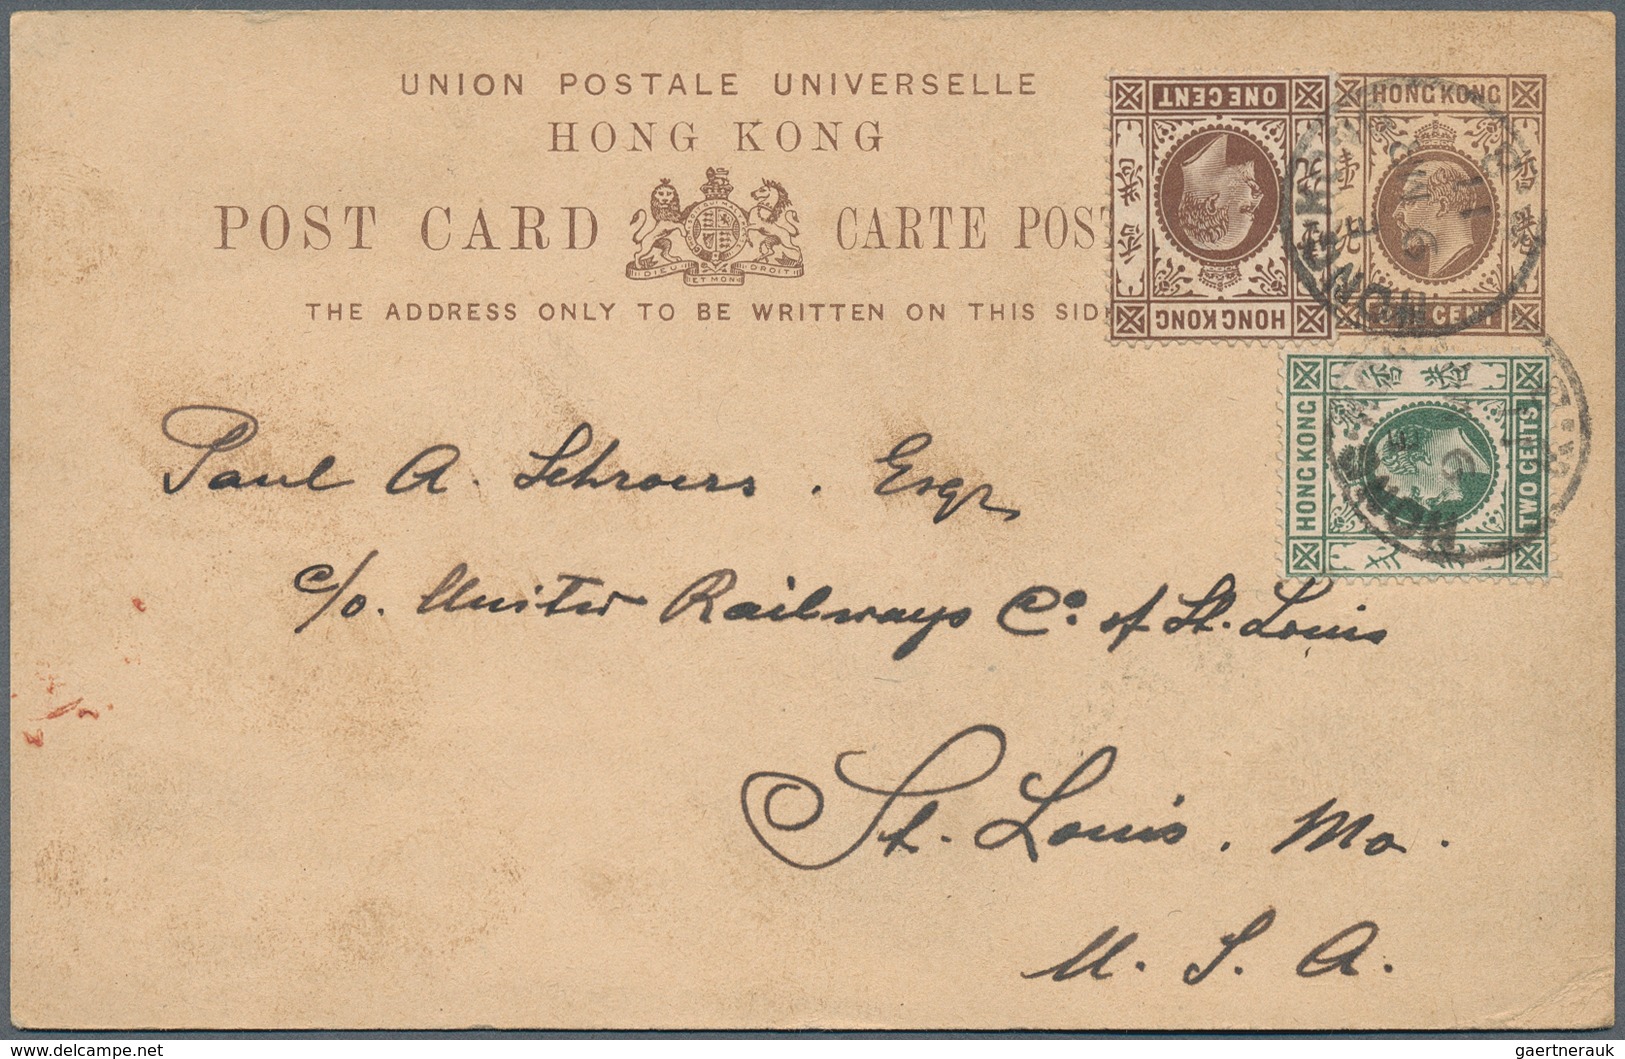 UNION POSTALE UNIVERSELLE
HONG KONG
POST CARD CARTE POST
DIEU ET MON DROIT
THE ADDRESS ONLY TO BE WRITTEN ON THIS SID
ONE CENT
香港
HONG KONG
HONG KONG
香港
壹
CENT
HONG KONG
香港
TWO CENTS
HONG
HONG
Paul A. Schroers. Esqr
c/o. United Railways Co. of St. Louis
St. Louis. Mo.
U. S. A.
delcampe.net
gaertnerauk